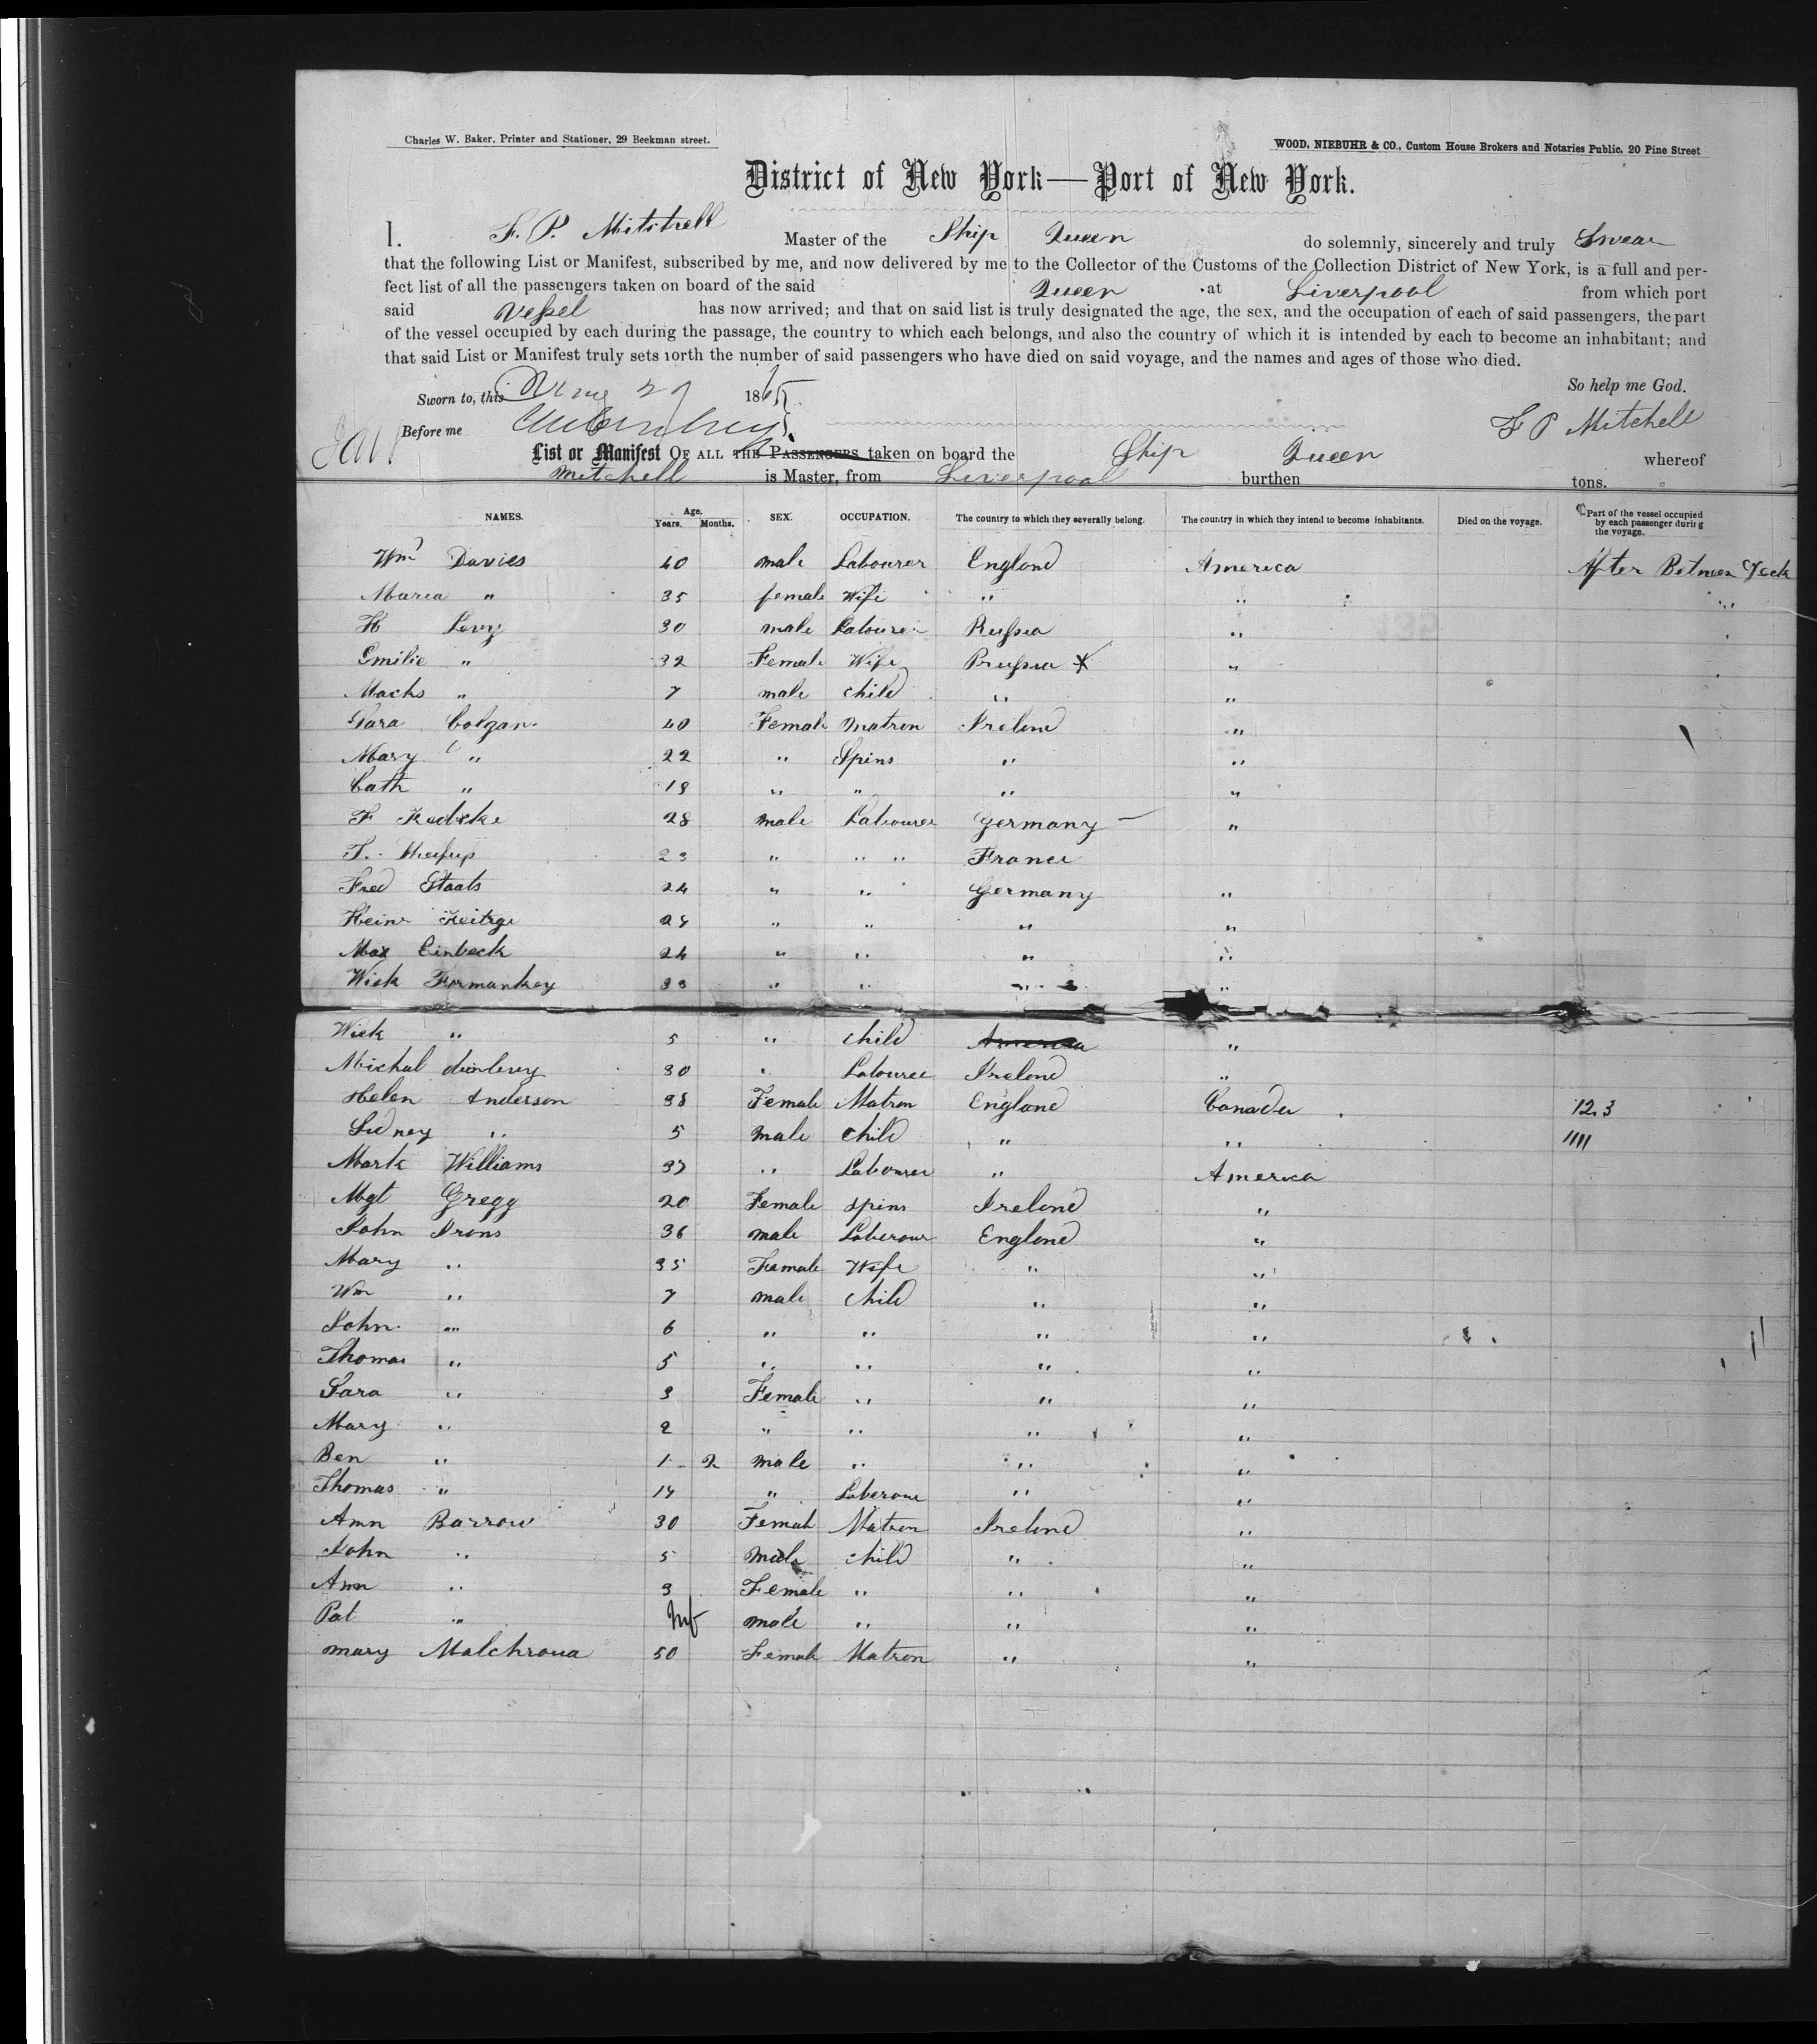 Charles W. Baker, Printer and Stationer, 29 Beekman street.
WOOD, NIEBUHR & CO., Custom House Brokers and Notaries Public, 20 Pine Street
District of New York—Port of New York.
I. F. P. Mitchell Master of the Ship Queen do solemnly, sincerely and truly Swear
that the following List or Manifest, subscribed by me, and now delivered by me to the Collector of the Customs of the Collection District of New York, is a full and per-
fect list of all the passengers taken on board of the said Queen at Liverpool from which port
said Vessel has now arrived; and that on said list is truly designated the age, the sex, and the occupation of each of said passengers, the part
of the vessel occupied by each during the passage, the country to which each belongs, and also the country of which it is intended by each to become an inhabitant; and
that said List or Manifest truly sets forth the number of said passengers who have died on said voyage, and the names and ages of those who died.
Sworn to, this 29 1865 So help me God.
Before me F P Mitchell
List or Manifest OF ALL THE PASSENGERS taken on board the Ship Queen whereof
Mitchell is Master, from Liverpool burthen tons.
NAMES. Age. Years. Months. SEX. OCCUPATION. The country to which they severally belong. The country in which they intend to become inhabitants. Died on the voyage. Part of the vessel occupied by each passenger during the voyage.
Wm Davies 40 male Labourer England America After Between Deck
Maria " 35 female Wife " " "
H Levy 30 male Labourer Russia "
Emilie " 32 Female Wife Prussia "
Machs " 7 male child " "
Sara Colgan 40 Female Matron Ireland "
Mary " 22 " Spins " "
Cath " 18 " " " "
F 28 male Labourer Germany "
T. 23 " " " France
Fred Staats 24 " " Germany "
Hein 24 " " " "
Max Einbeck 24 " " " "
Wick Formankey 33 " " " "
Wick " 5 " child America "
Michal 30 " Labourer Ireland "
Helen Anderson 38 Female Matron England Canada 12.3
Sidney " 5 male child " " 1111
Mark Williams 37 " Labourer " America
Mgt Gregg 20 Female spins Ireland "
John Irons 36 male Laberour England "
Mary " 35 Female Wife " "
Wm " 7 male child " "
John " 6 " " " "
Thomas " 5 " " " "
Sara " 3 Female " " "
Mary " 2 " " " "
Ben " 1 2 male " " "
Thomas " 14 " Laberour " "
Ann Barrow 30 Female Matron Ireland "
John " 5 male child " "
Ann " 3 Female " " "
Pat " Inf male " " "
mary Malchroua 50 Female Matron " "